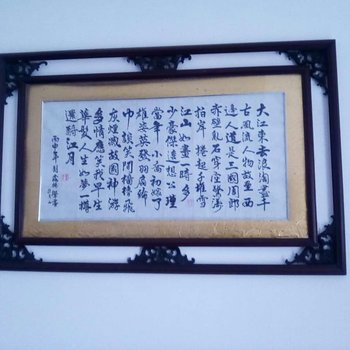 大江東去浪淘盡千
古風流人物故壘西
邊人道是三國周郎
赤壁亂石穿空驚濤
拍岸捲起千堆雪
江山如畫一時多
少豪傑遙想公瑾
當年小喬初嫁了
雄姿英發羽扇綸
巾談笑間檣櫓飛
灰煙滅故國神游
多情應笑我早生
華髮人生如夢一樽
還酹江月
丙申年